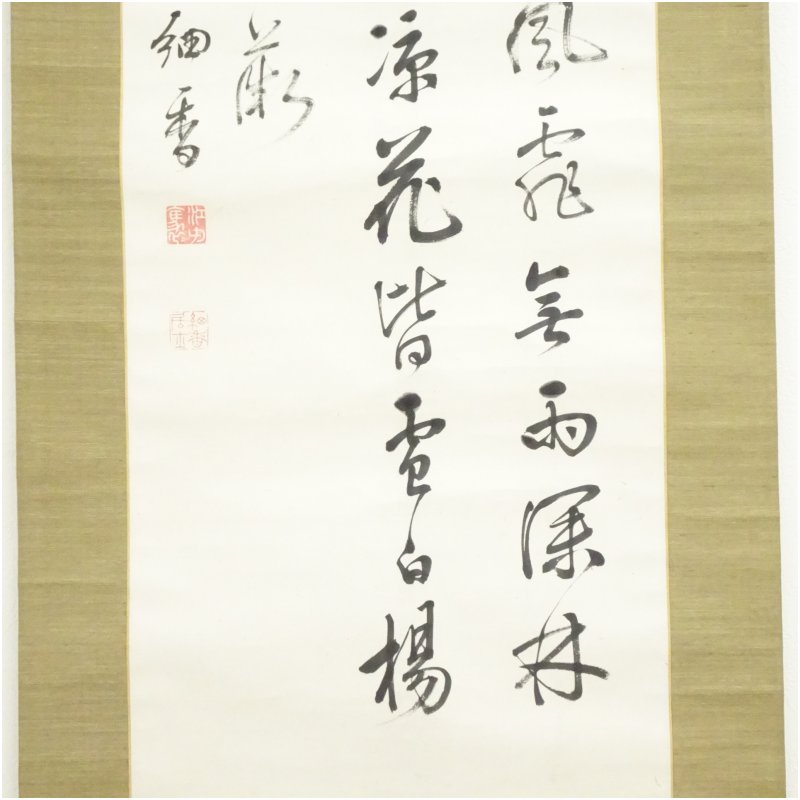 風霏無雨深林
涼花皆雪白楊
薇
細香